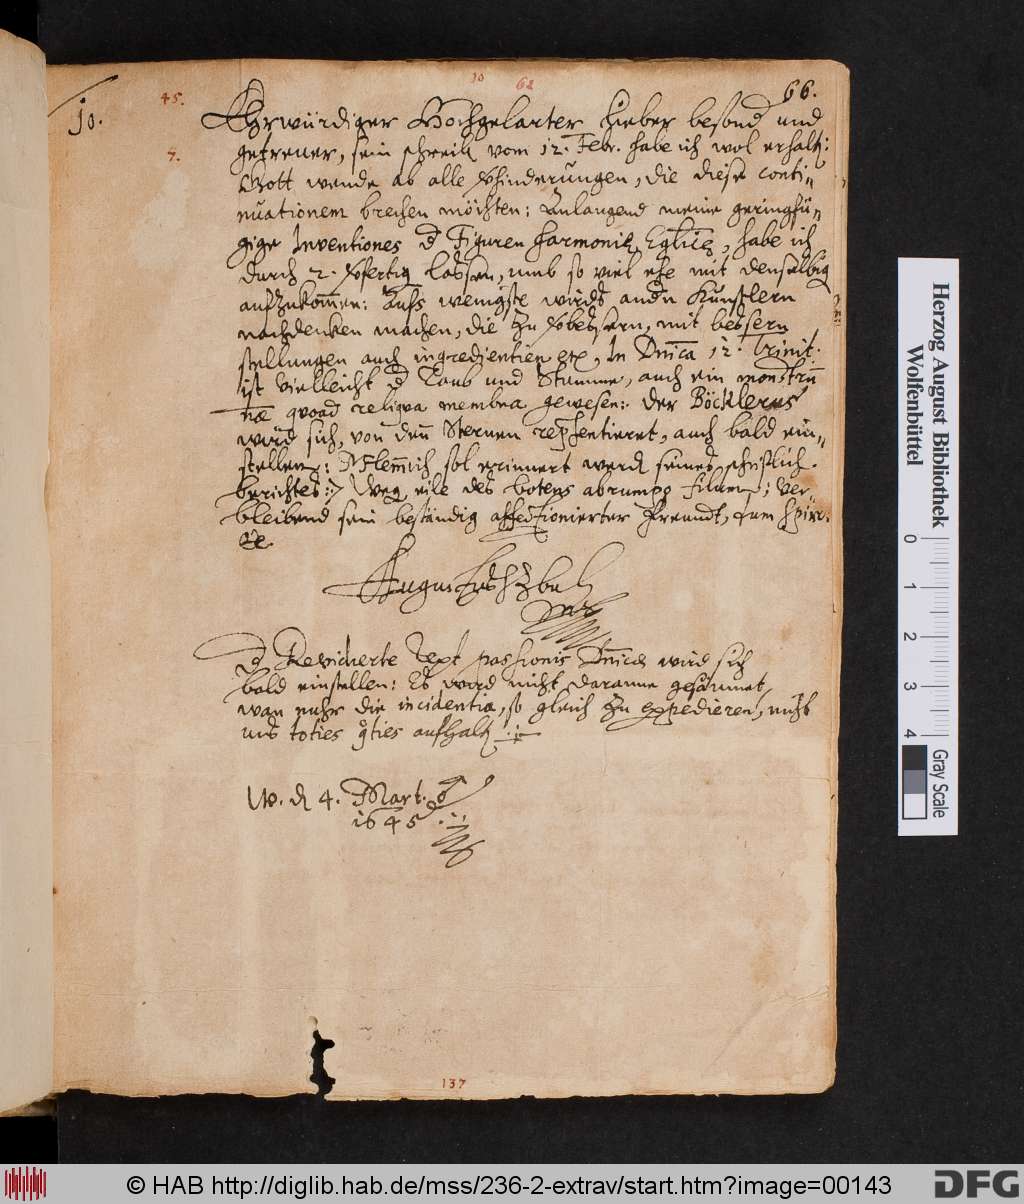 10.
45.
10
62
66.
7.
Ehrwürdiger Hochgelarter Lieber besond und
getreuer, sein schreib vom 12. Febr. habe ich wol erhalt:
Gott wende ab alle vhinderungen, die diese conti-
nuationem brechen möchten: Anlangend meine geringfü-
gige Inventiones d Figuren harmoniæ habe ich
durch 2. vfertig lassen, umb so viel ehe mit denselbig
aufzukom̄en: Aufs wenigste wirds andn Künstlern
nachdenken machen, die zu vbessern, mit bessern
stellungen auch ingredientien etc. In Dn̄ica 12. Trinit.
ist vielleicht d Taub und Stumme, auch ein monstrū
quoad reliqua membra gewesen: Der Böcklerus
wird sich, von den Sternen repsentieret, auch bald ein-
stellen: sol erinnert werd seines schriftlich.
berichtes: Weg eile des botens abrumpo filum; Ver-
bleibend sein beständig affectionierter Freundt, cum
etc.
Augustus HzBuL
d Revidierte Text passionis Dn̄icæ wird sich
bald einstellen: Es wird nicht daranne gesäumet,
wan nuhr die incidentia, so gleich zu expedieren, nicht
uns toties qties aufhalt
W. d 4. Mart.
1645
137
Herzog August Bibliothek
Wolfenbüttel
0 1 2 3 4
Gray Scale
© HAB http://diglib.hab.de/mss/236-2-extrav/start.htm?image=00143
DFG